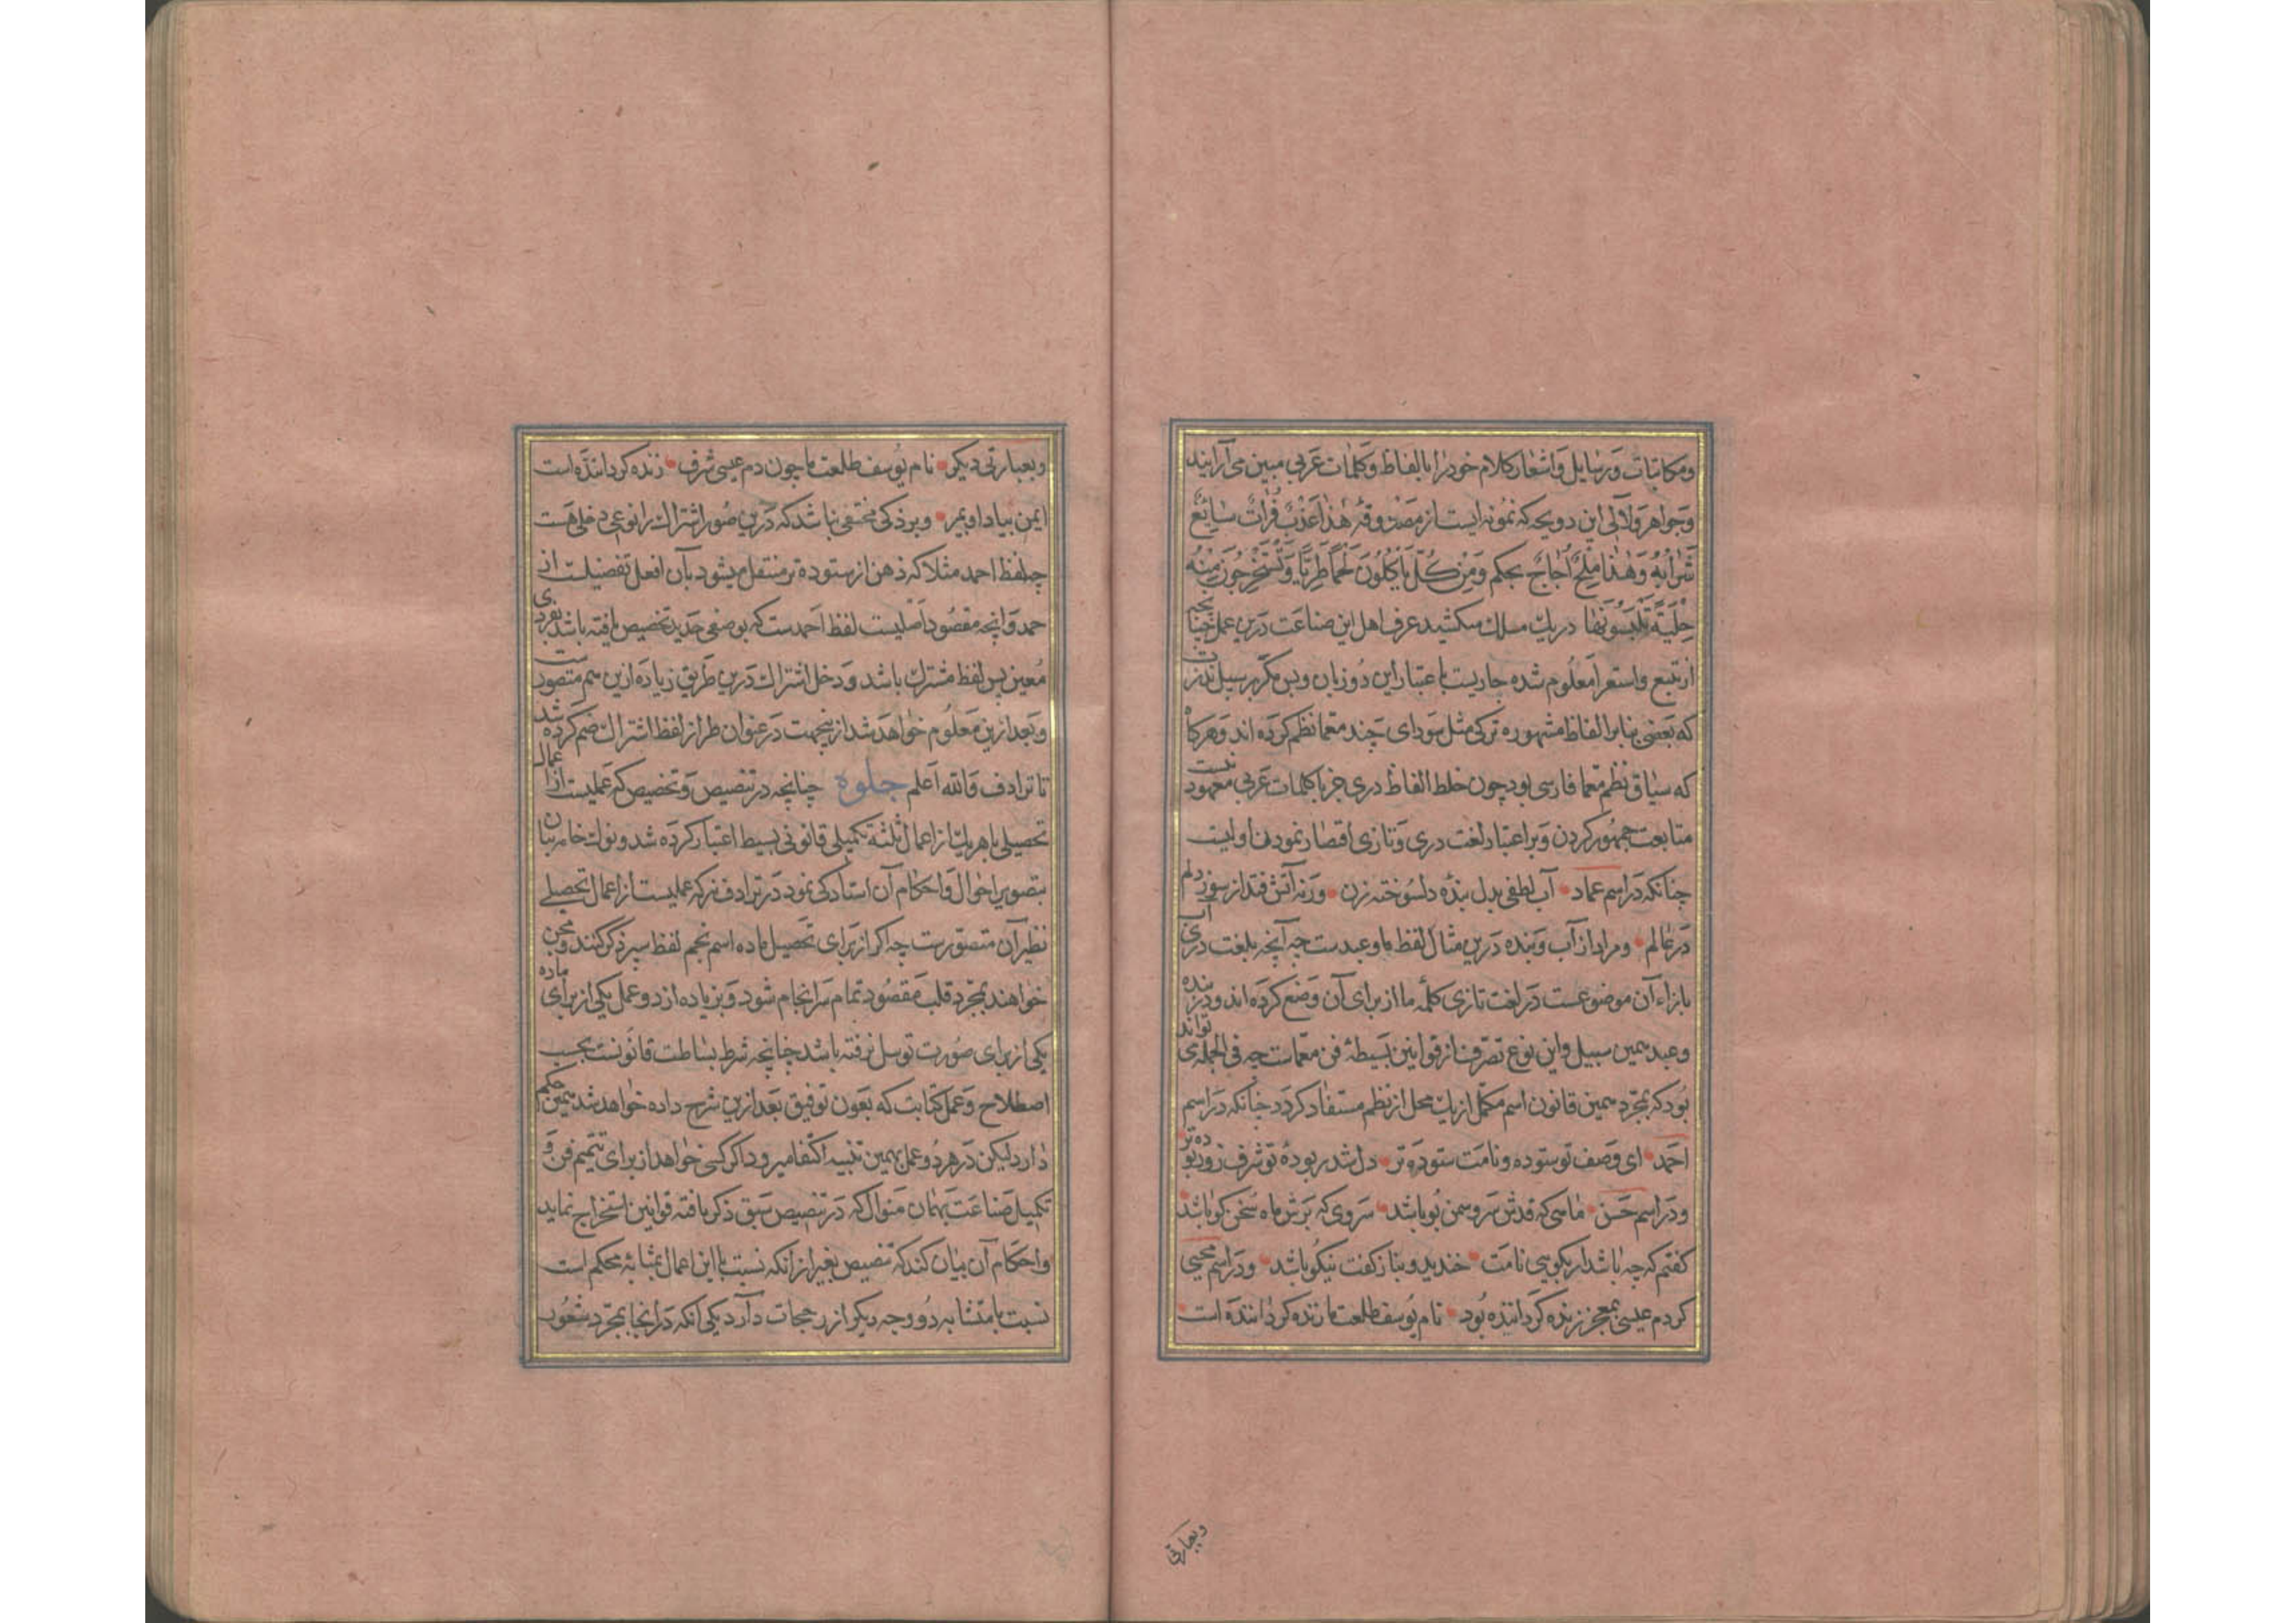 ومکاتبات ورسایل واشعار کلام خود را بالفاظ وکلمات عربی مبین می آرایند
وجواهر ولآلی این دو بحر که نمونه ایست از مصدوقهٔ هٰذا عَذْبٌ فُراتٌ سَائِغٌ
شَرَابُهُ وَهٰذا مِلْحٌ اُجَاجٌ بحکم وَمِنْ کُلٍّ تَأْکُلُونَ لَحْمًا طَرِیًّا وَتَسْتَخْرِجُونَ مِنْهُ
حِلْیَةً تَلْبَسُونَهَا در یک سلک میکشید عرف اهل این صناعت درین عمل چنانچه
از تتبع واستقرا معلوم شده جاریست باعتبار این دو زبان وبس مگر بر سبیل ندرت
که بعضی بنا بر الفاظ مشهوره ترکی مثل سودای چند معما نظم کرده اند وهرگاه
که سیاق نظم معما فارسی بود چون خلط الفاظ دری جز با کلمات عربی معهود نیست
متابعت جمهور کردن وبر اعتبار لغت دری وتازی اقصار نمودن اولیست
چنانکه در اسم عماد آب لطفی بدل بندهٔ دلسوخته زن ورنه آتش فتد از سوز دلم
در عالم ومراد از آب وبنده درین مثال لفظ ما وعبدست چه آنچه بلغت دری آب
بازاء آن موضوعست در لغت تازی کلمهٔ ما از برای آن وضع کرده اند ودر بنده
وعبد همین سبیل واین نوع تصرف از قوانین بسیطهٔ فن معماست چه فی الجمله می تواند
بود که بمجرد همین قانون اسم مکمل از یک محل از نظم مستفاد گردد چنانکه در اسم
احمد ای وصف تو ستوده ونامت ستوده تر دل شد ربودهٔ تو شرف زو ربوده تر
ودر اسم حسن ماهی که قدش سرو سمن بو باشد سروی که برش ماه سخن گو باشد
گفتم که چه باشد ار بگویی نامت خندید وبناز گفت نیکو باشد ودر اسم محیی
کر دم عیسی بمعجز زنده گرداننده بود نام یوسف طلعت ما زنده گرداننده است
وبعبارتی
وبعبارتی دیگر نام یوسف طلعت ما چون دم عیسی شرف زنده گرداننده است
ایمن بیاد او بمیر وبر ذکی مختفی نباشد که درین صور اشتراک را نوعی دخلی هست
چه لفظ احمد مثلا که ذهن از ستوده تر منتقل میشود بآن افعل تفضیلت از
حمد وآنچه مقصود اصلیست لفظ احمدست که بوضعی جدید تخصیص یافته باشد بفردی
معین پس لفظ مشترک باشد ودخل اشتراک درین طریق زیاده ازین هم متصورست
وبعد ازین معلوم خواهد شد ازینجهت در عنوان طراز لفظ اشتراک ضم کرده شد
تا ترادف والله اعلم جلوه چنانچه در تنصیص وتخصیص که عملیست از اعمال
تحصیلی با هر یک از اعمال ثلثهٔ تکمیلی قانونی بسیط اعتبار کرده شد ونوک خامه بیان
بتصویر احوال واحکام آن استادگی نمود در ترادف نیز که عملیست از اعمال تحصیلی
نظیر آن متصورست چه اگر از برای تحصیل ماده اسم نجم لفظ سپر ذکر کنند ومجن
خواهند بمجرد قلب مقصود تمام سرانجام شود وبزیاده از دو عمل یکی از برای ماده
یکی از برای صورت توسل نرفته باشد چنانچه شرط بساطت قانونست بحسب
اصطلاح وعمل کتابت که بعون توفیق بعد ازین شرح داده خواهد شد همین حکم
دارد لیکن در هر دو عمل بهمین تنبیه اکتفا میرود اگر کسی خواهد از برای تتمیم فن و
تکمیل صناعت بهمان منوال که در تنصیص سبق ذکر یافته قوانین استخراج نماید
واحکام آن بیان کند که تنصیص بغیر از آنکه نسبت با این اعمال بمثابهٔ محکم است
نسبت با متشابه دو وجه دیگر از رجحات دارد یکی آنکه در اینجا بمجرد شعور